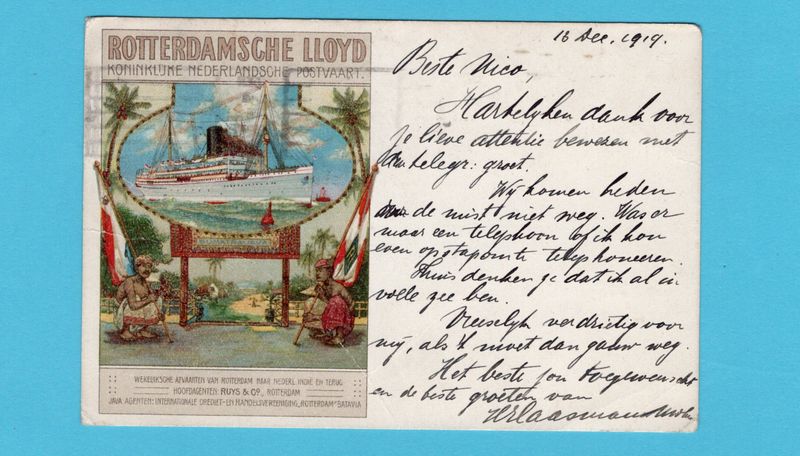 ROTTERDAMSCHE LLOYD
KONINKLIJKE NEDERLANDSCHE POSTVAART.
WEKELIJKSCHE AFVAARTEN VAN ROTTERDAM NAAR NEDERL. INDIË EN TERUG
HOOFDAGENTEN: RUYS & Co., ROTTERDAM
JAVA AGENTEN: INTERNATIONALE CREDIET-EN HANDELSVEREENIGING „ROTTERDAM" BATAVIA
16 Dec. 1919.
Beste Nico,
Hartelyken dank voor
je lieve attentie bewezen met
telegr: groet.
Wy komen heden
de mist niet weg. Was er
maar een telephoon of ik kon
even opstapomte telephoneeren.
Thuis denken ze dat ik al in
volle zee ben.
Vreeselyk verdrietig voor
my, als 't moet dan gauw weg.
Het beste jon toegewenscht
en de beste groeten van